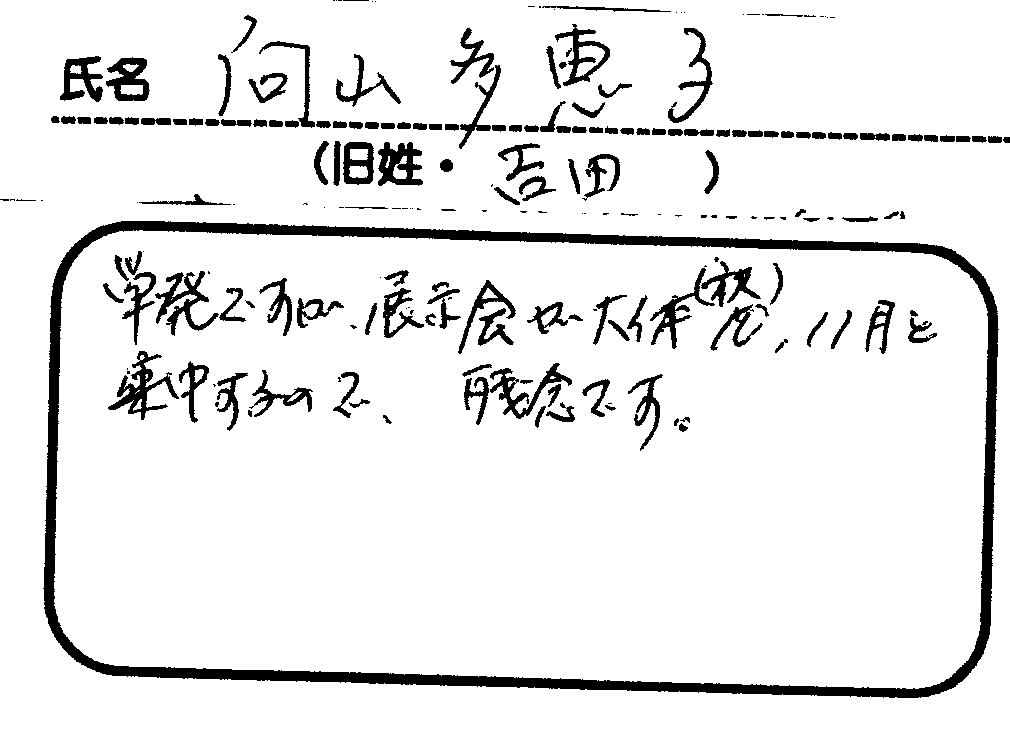 氏名 向山 多恵子
(旧姓・ 吉田 )
単発ですが、展示会が大体(秋)、11月と
集中するので、残念です。